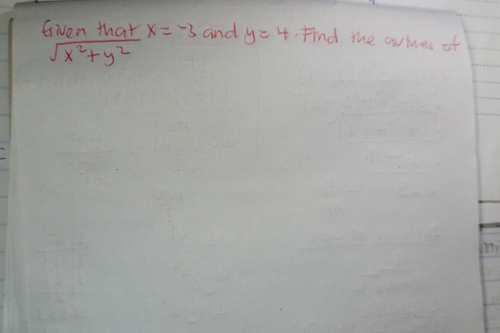 Given that x = -3 and y = 4. Find the values of
√x²+y²